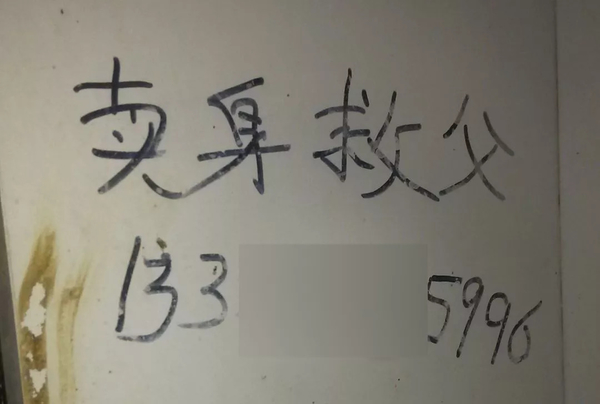 卖身救父
133 5996